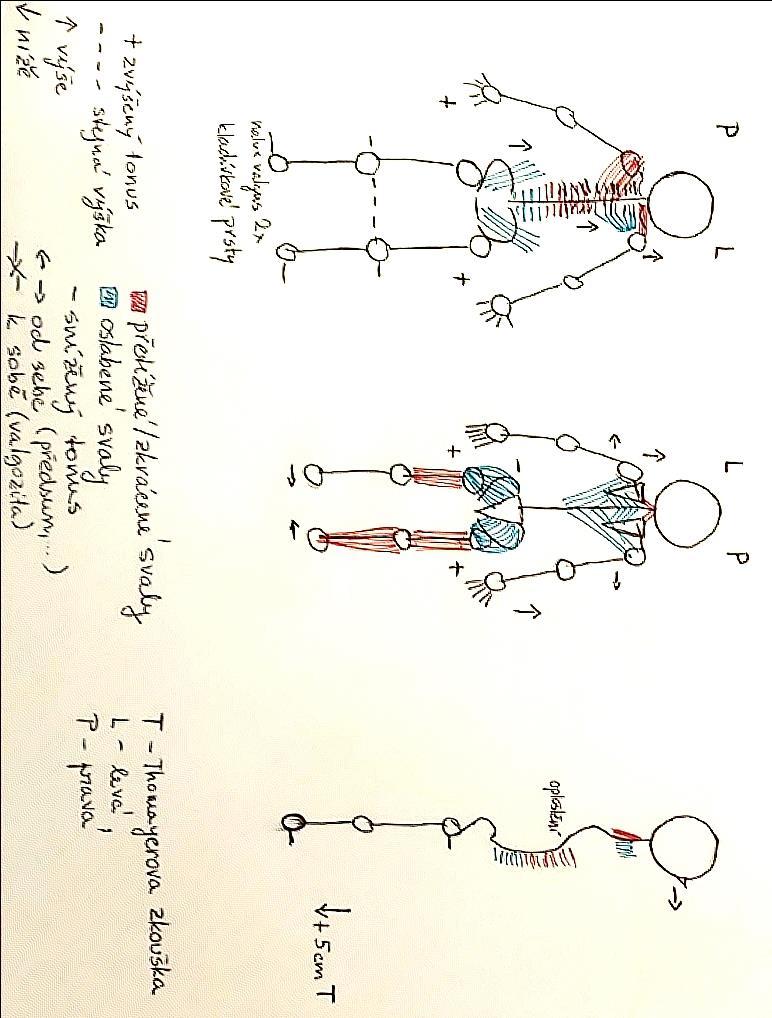 P L L P
+ +
+ +
oploštění
↓+ 5 cm T
halux valgus 2x
kladívkové prsty
+ zvýšený tonus
- - - - stejná výška
↑ výše
↓ níže
přetížené/zkrácené svaly
oslabené svaly
- snížený tonus
← → od sebe (předsun,...)
→← k sobě (valgozita)
T - Thomayerova zkouška
L - levá
P - pravá